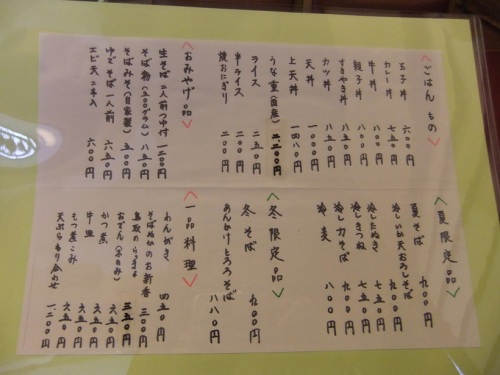 <ごはんもの>
玉子丼 六〇〇円
カレー丼 七五〇円
牛丼 八〇〇円
親子丼 八〇〇円
すきやき丼 八五〇円
カツ丼 八五〇円
天丼 一〇〇〇円
上天丼 一四八〇円
うな重(国産) 二二〇〇円
ライス 二五〇円
半ライス 二〇〇円
焼おにぎり 二〇〇円
<おみやげ品>
生そば二人前つゆ付 一二〇〇円
そば粉(五〇〇グラム) 八五〇円
そばみそ(自家製) 五〇〇円
ゆでそば一人前 三〇〇円
エビ天二本入 六〇〇円
<夏限定品>
夏そば 九〇〇円
冷しいか天おろしそば 九〇〇円
冷したぬき 七五〇円
冷しきつね 七五〇円
冷し力そば 九〇〇円
冷麦 八〇〇円
<冬限定品>
冬そば 九〇〇円
あんかけとろろそば 八八〇円
<一品料理>
わんがき 四五〇円
そばぬかのお新香 三〇〇円
鳥取のらっきょう
おでん(冬のみ) 三五〇円
かつ煮 六五〇円
牛皿 六五〇円
もつ煮こみ 六五〇円
天ぷらもり合わせ 一二〇〇円